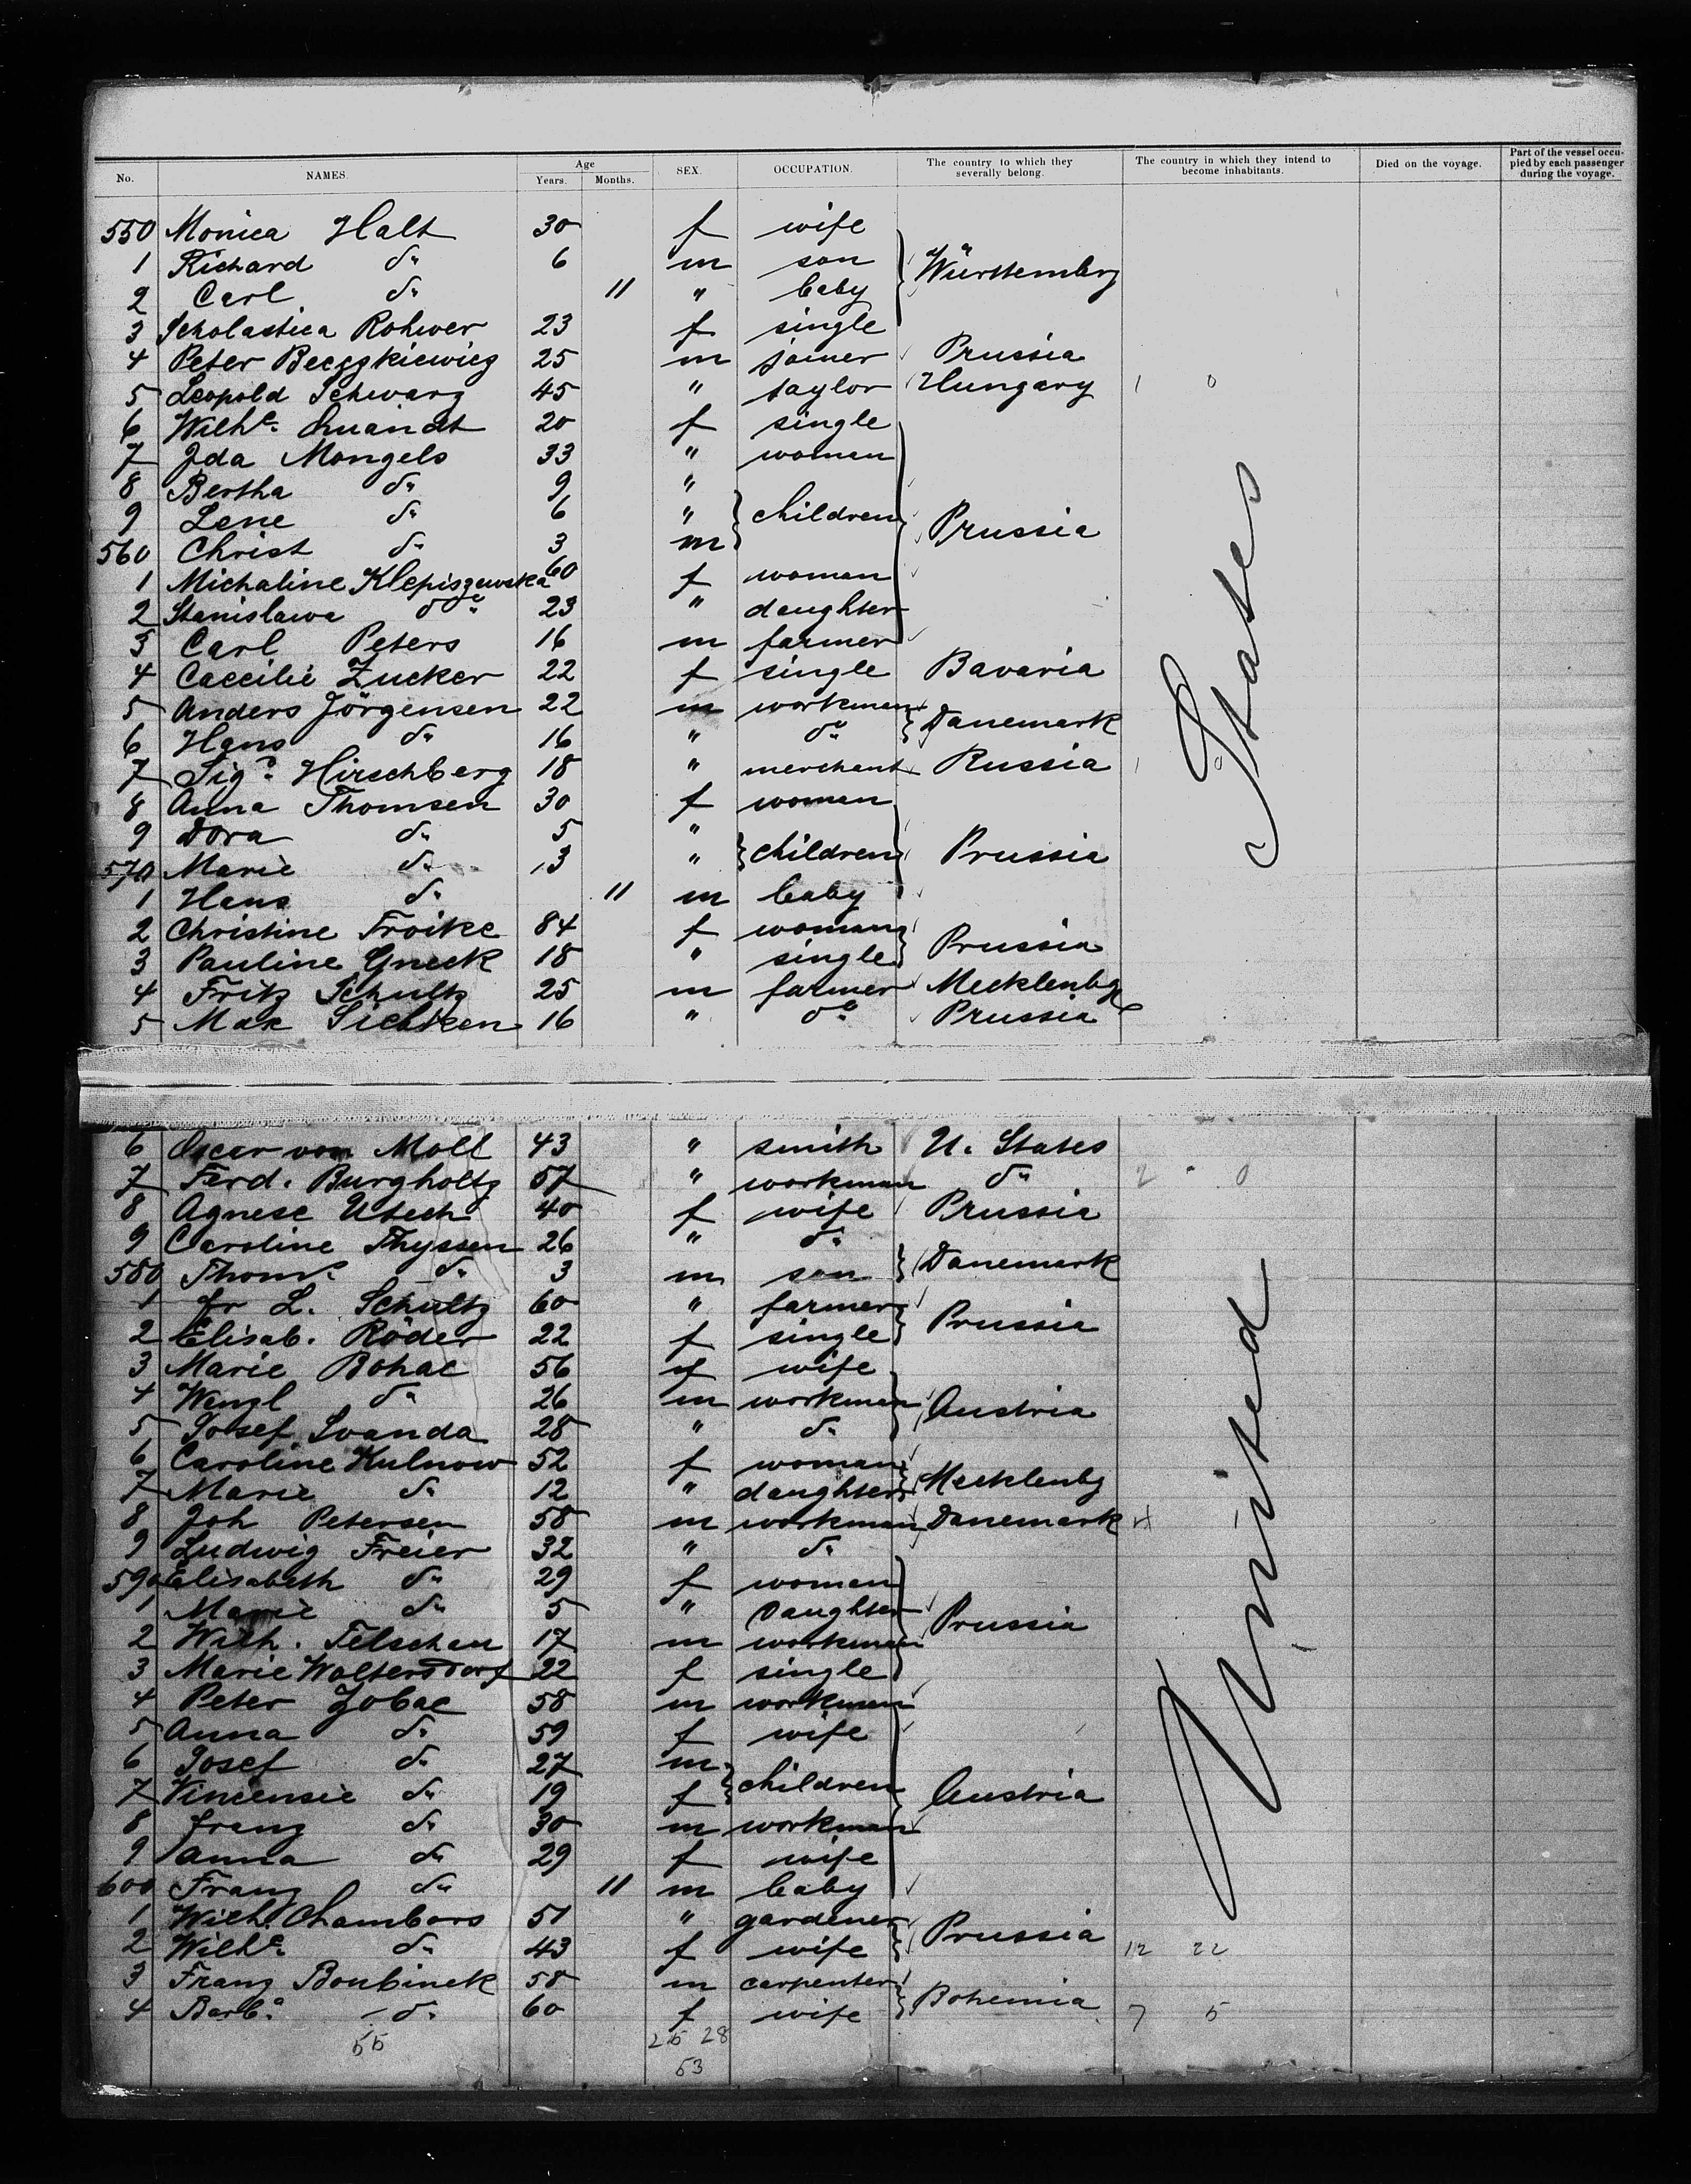 No. NAMES. Age Years. Months. SEX. OCCUPATION. The country to which they severally belong. The country in which they intend to become inhabitants. Died on the voyage. Part of the vessel occupied by each passenger during the voyage.
550 Monica Halt 30 f wife
1 Richard do 6 m son Württemberg
2 Carl do 11 " baby
3 Scholastica Rohwer 23 f single
4 Peter 25 m joiner Prussia
5 Leopold Schwarz 45 " taylor Hungary 1 0
6 Wilhe. Quandt 20 f single
7 Ida Mangels 33 " woman
8 Bertha do 9 "
9 Lene do 6 " children Prussia
560 Christ do 3 m
1 Michaline Klepiszewska 60 f woman
2 Stanislawa do 23 " daughter
3 Carl Peters 16 m farmer
4 Caecilie Zucker 22 f single Bavaria
5 Anders Jörgensen 22 m workman Danemark
6 Hans do 16 " do
7 Sigd. Hirschberg 18 " merchant Russia 1 0
8 Anna Thomsen 30 f woman
9 Dora do 5 "
570 Marie do 3 " children Prussia
1 Hans do 11 m baby
2 Christine Troike 84 f woman Prussia
3 Pauline Gneck 18 " single
4 Fritz Schultz 25 m farmer Mecklenbg
5 Max 16 " do Prussia
6 Oscar von Moll 43 " smith U. States
7 Ferd. Burgholtz 57 " workman do 2 0
8 Agnese Utech 40 f wife Prussia
9 Caroline Thyssen 26 " do Danemark
580 Thoms. do 3 m son
1 Fr L. Schultz 60 " farmer Prussia
2 Elisab. Röder 22 f single
3 Marie Bohac 56 f wife
4 Wenzl do 26 m workman Austria
5 Josef Svanda 28 " do
6 Caroline Kulnow 52 f woman Mecklenbg
7 Marie do 12 " daughter
8 Joh Petersen 58 m workman Danemark
9 Ludwig Freier 32 " do
590 Elisabeth do 29 f woman
1 Marie do 5 " Daughter Prussia
2 Wilh. Telschau 17 m workman
3 Marie Woltersdorf 22 f single
4 Peter Zobac 58 m workman
5 Anna do 59 f wife
6 Josef do 27 m
7 Vincensie do 19 f children Austria
8 Franz do 30 m workman
9 Anna do 29 f wife
600 Franz do 11 m baby
1 Wilh. Chambors 51 " gardener Prussia
2 Wilhe. do 43 f wife 12 22
3 Franz Boubinek 58 m carpenter Bohemia
4 Barba. do 60 f wife 7 5
55 25 28
53
United States